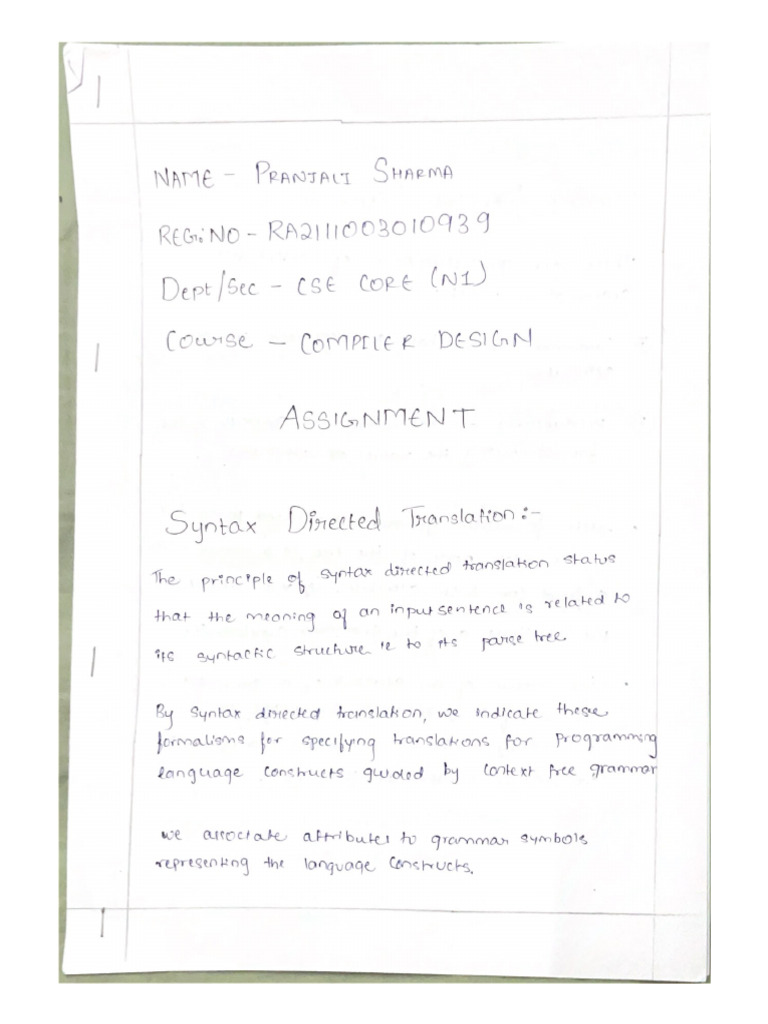 NAME - PRANJALI SHARMA
REG:NO - RA2111003010939
Dept/Sec - CSE CORE (N1)
Course - COMPILER DESIGN
ASSIGNMENT
Syntax Directed Translation :-
The principle of syntax directed translation status
that the meaning of an input sentence is related to
its syntactic structure ie to its parse tree
By syntax directed translation, we indicate these
formalisms for specifying translations for programming
language constructs guided by context free grammar
we associate attributes to grammar symbols
representing the language constructs.